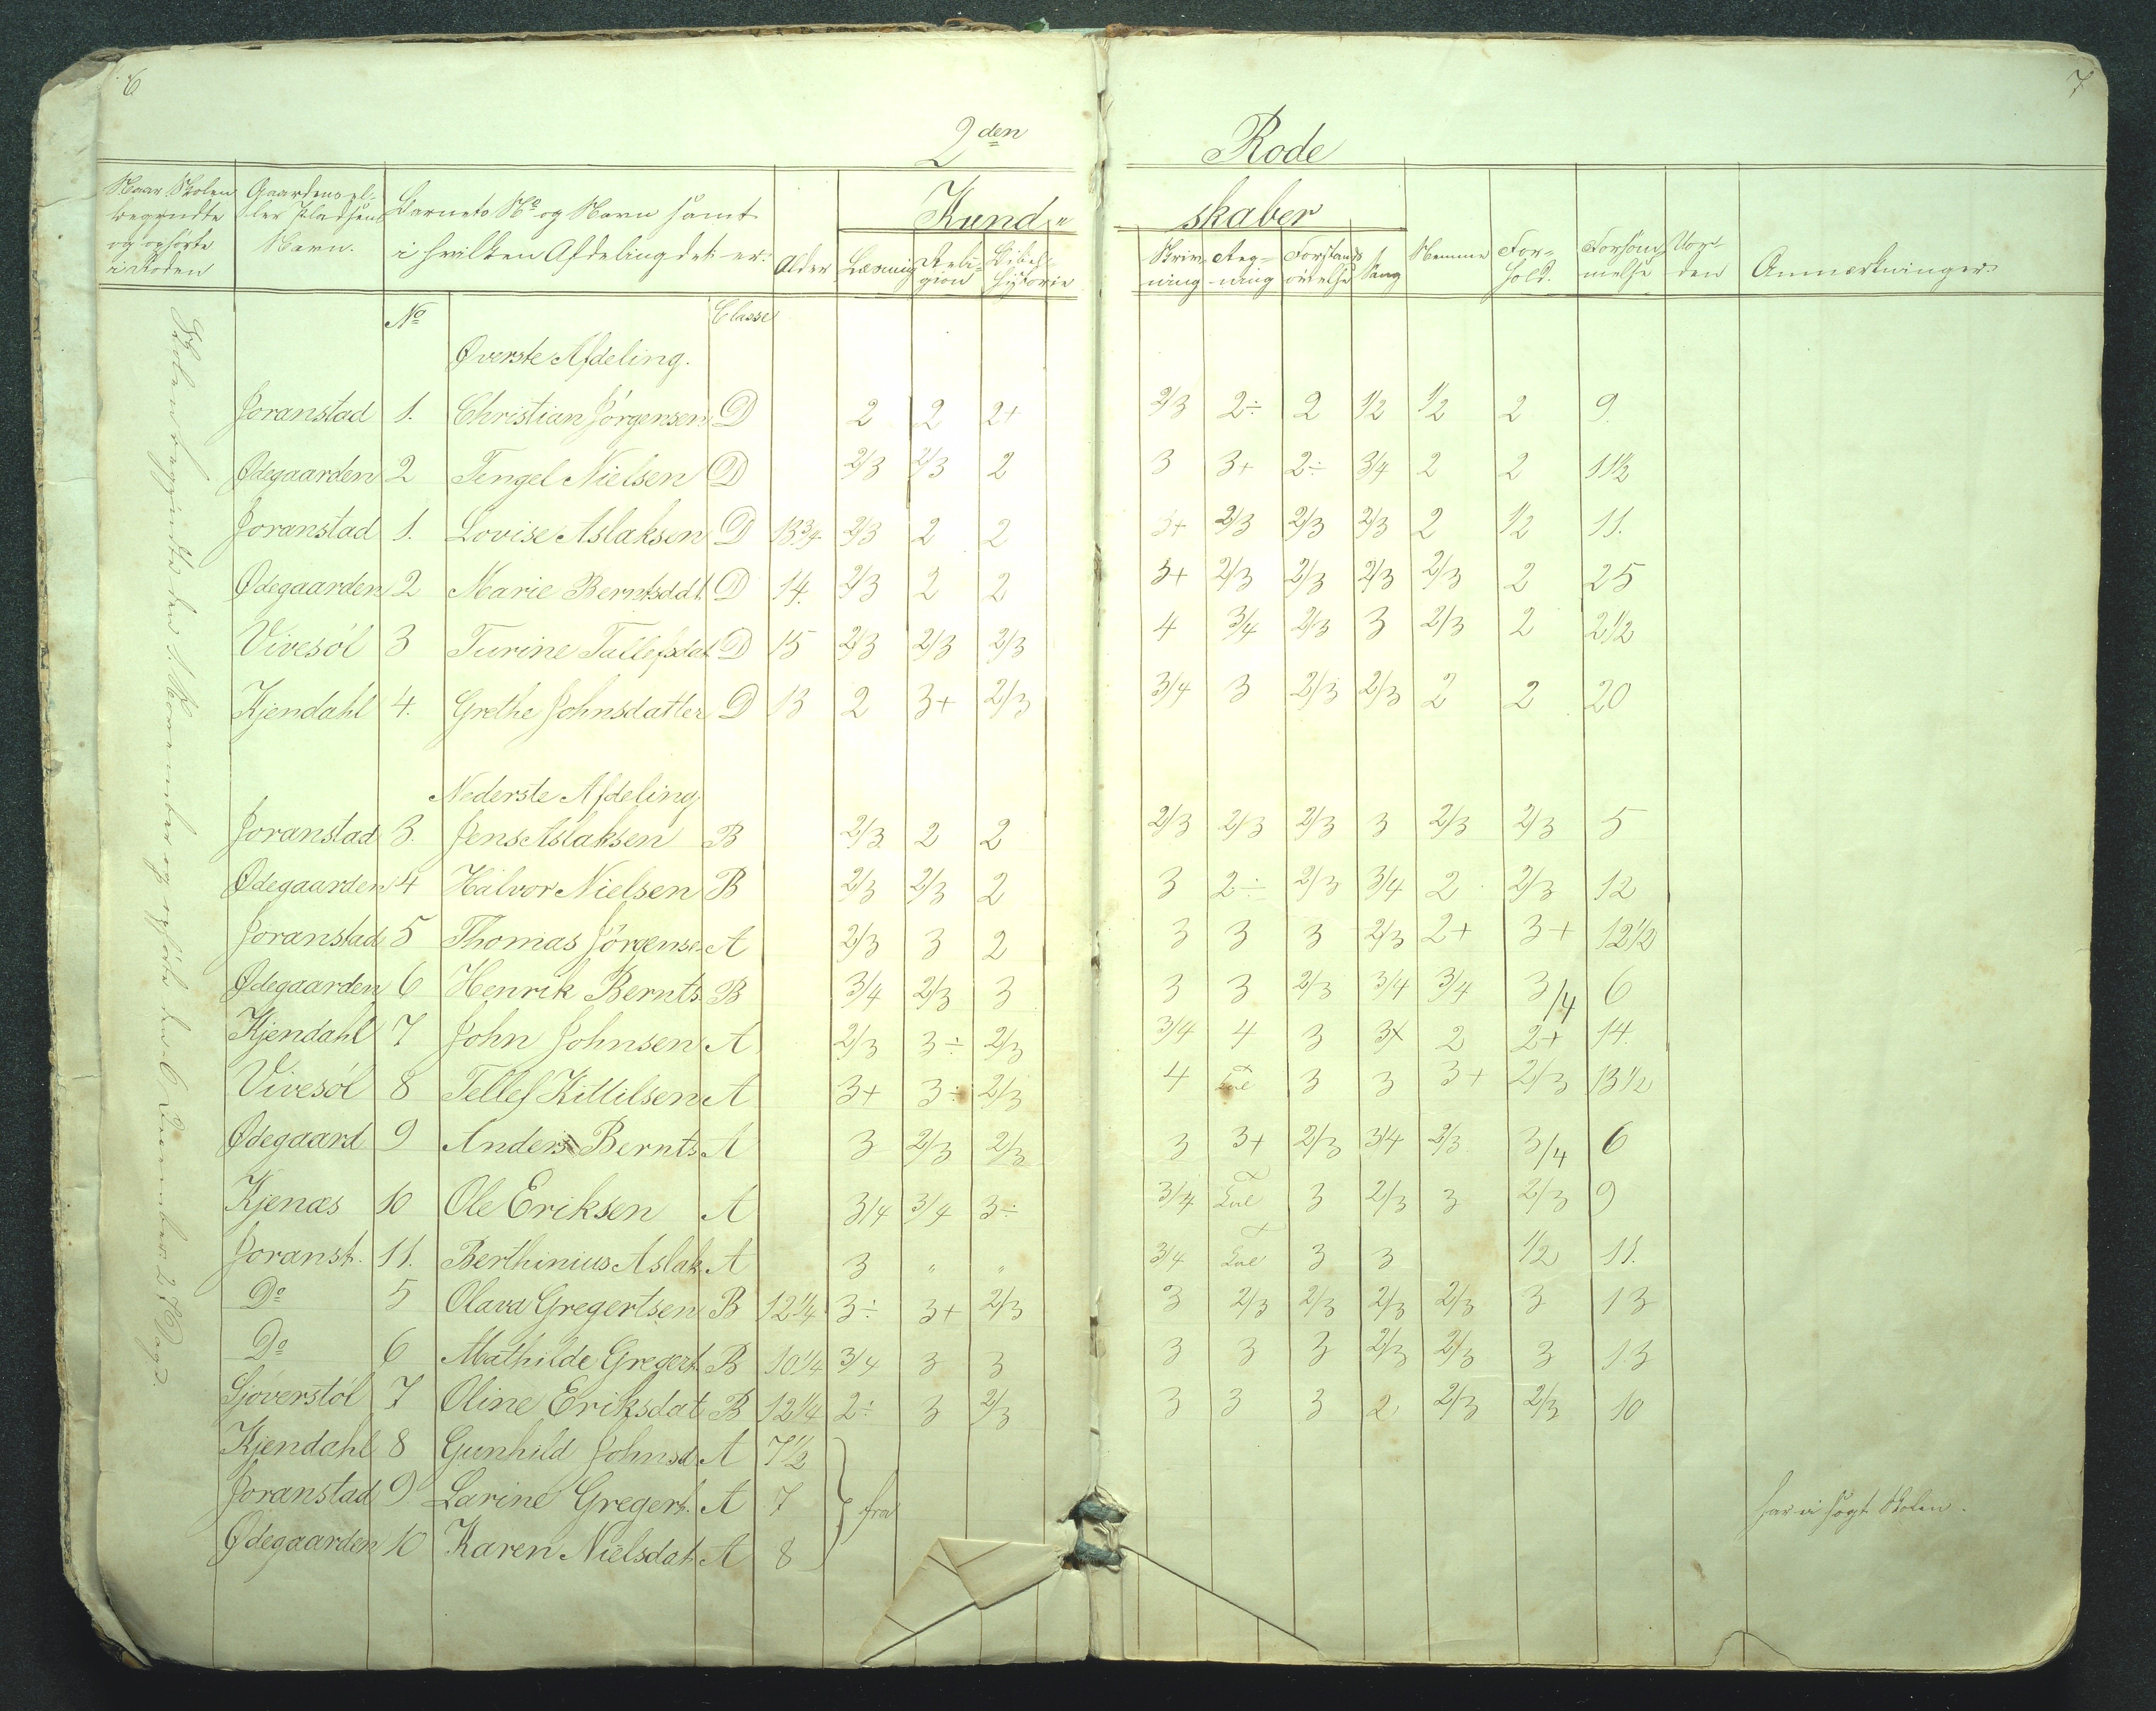 6
7
2den Rode
Naar Skolen begyndte og ophørte i Roden
Gaardens eller Pladsens Navn.
Barnets No og Navn samt i hvilken Afdeling det er.
Alder
Kund- skaber
Læsning
Religion
Bibelhistorie
Skrivning
Regning
Forstandsøvelse
Sang
Nemme
Forhold.
Forsømmelse
Anmærkninger
No Classe
Øverste Afdeling.
Joranstad 1. Christian Jörgensen D 2 2 2+ 2/3 2÷ 2 1/2 1/2 2 9.
Ødegaarden 2 Tengel Nielsen D 2/3 2/3 2 3 3+ 2÷ 3/4 2 2 11½
Joranstad 1. Lovise Aslaksen D 13¾ 2/3 2 2 3+ 2/3 2/3 2/3 2 1/2 11.
Ødegaarden 2 Marie Berntsddt. D 14. 2/3 2 2 3+ 2/3 2/3 2/3 2/3 2 25
Vivesöl 3 Turine Tallefsdat D 15 2/3 2/3 2/3 4 3/4 2/3 3 2/3 2 21/2
Kjendahl 4. Grethe Johnsdatter D 13 2 3+ 2/3 3/4 3 2/3 2/3 2 2 20
Nederste Afdeling
Joranstad 3. Jens Aslaksen B 2/3 2 2 2/3 2/3 2/3 3 2/3 2/3 5
Ødegaarden 4 Halvor Nielsen B 2/3 2/3 2 3 2÷ 2/3 3/4 2 2/3 12
Joranstad 5 Thomas Jörgense A 2/3 3 2 3 3 3 2/3 2+ 3+ 12½
Ødegaarden 6 Henrik Bernts B 3/4 2/3 3 3 3 2/3 3/4 3/4 3/4 6
Kjendahl 7 John Johnsen A 2/3 3÷ 2/3 3/4 4 3 3+ 2 2+ 14.
Vivesöl 8 Tellef Kittilsen A 3+ 3÷ 2/3 4 3 3 3+ 2/3 13½
Ødegaard 9 Anders Bernts A 3 2/3 2/3 3 3+ 2/3 3/4 2/3 3/4 6
Kjenæs 10 Ole Eriksen A 3/4 3/4 3÷ 3/4 3 2/3 3 2/3 9
Joranst. 11. Berthinius Aslak A 3 " " 3/4 3 3 1/2 11.
Do 5 Olava Gregertsen B 12¼ 3÷ 3+ 2/3 3 2/3 2/3 2/3 2/3 3 13
Do 6 Mathilde Gregert. B 10¼ 3/4 3 3 3 3 3 2/3 2/3 3 13
Sjöverstöl 7 Oline Eriksdat B 12¼ 2÷ 3 2/3 3 3 3 2 2/3 2/3 10
Kjendahl 8 Gunhild Johnsd A 7½
Joranstad 9 Larine Gregert. A 7 fra har ei søgt Skolen.
Ødegaarden 10 Karen Nielsdat. A 8
Skolen begyndte den 1. November og ophørte den 6 December